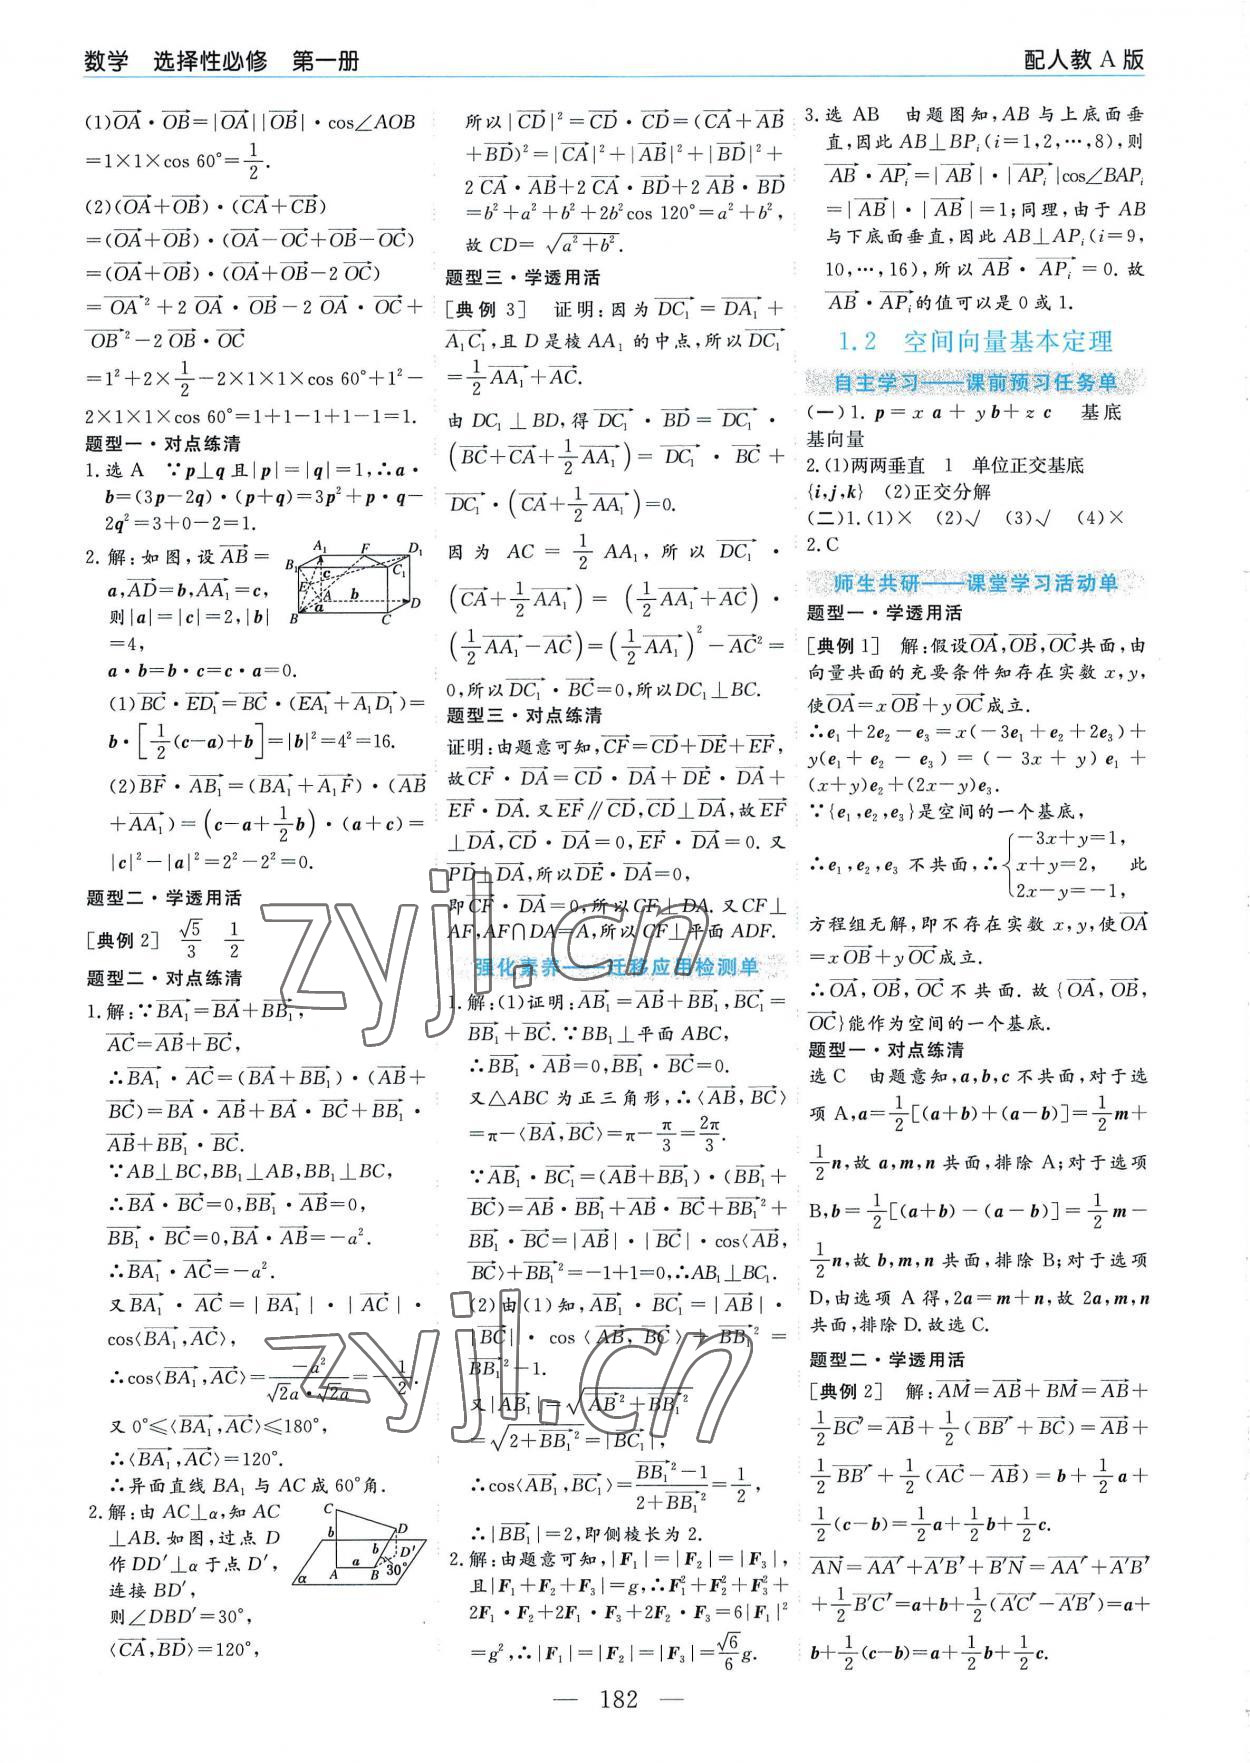 数学 选择性必修 第一册
配人教 A 版
(1)OA·OB=|OA||OB|·cos∠AOB
=1×1×cos 60°=1/2.
(2)(OA+OB)·(CA+CB)
=(OA+OB)·(OA-OC+OB-OC)
=(OA+OB)·(OA+OB-2 OC)
=OA²+2 OA·OB-2 OA·OC+
OB²-2 OB·OC
=1²+2×1/2-2×1×1×cos 60°+1²-
2×1×1×cos 60°=1+1-1+1-1=1.
题型一·对点练清
1.选 A ∵p⊥q 且|p|=|q|=1,∴a·
b=(3p-2q)·(p+q)=3p²+p·q-
2q²=3+0-2=1.
2.解:如图,设AB=
a,AD=b,AA₁=c,
则|a|=|c|=2,|b|
=4,
a·b=b·c=c·a=0.
A₁ F D₁
B₁ C₁
E c
A b D
a
B C
(1)BC·ED₁=BC·(EA₁+A₁D₁)=
b·[1/2(c-a)+b]=|b|²=4²=16.
(2)BF·AB₁=(BA₁+A₁F)·(AB
+AA₁)=(c-a+1/2b)·(a+c)=
|c|²-|a|²=2²-2²=0.
题型二·学透用活
[典例 2] √5/3 1/2
题型二·对点练清
1.解:∵BA₁=BA+BB₁,
AC=AB+BC,
∴BA₁·AC=(BA+BB₁)·(AB+
BC)=BA·AB+BA·BC+BB₁·
AB+BB₁·BC.
∵AB⊥BC,BB₁⊥AB,BB₁⊥BC,
∴BA·BC=0,BB₁·AB=0,
BB₁·BC=0,BA·AB=-a².
∴BA₁·AC=-a².
又BA₁·AC=|BA₁|·|AC|·
cos⟨BA₁,AC⟩,
∴cos⟨BA₁,AC⟩=-a²/(√2a·√2a)=-1/2.
又 0°≤⟨BA₁,AC⟩≤180°,
∴⟨BA₁,AC⟩=120°.
∴异面直线 BA₁ 与 AC 成 60°角.
2.解:由 AC⊥α,知 AC
⊥AB.如图,过点 D
作 DD′⊥α 于点 D′,
连接 BD′,
则∠DBD′=30°,
⟨CA,BD⟩=120°,
C
b D
b D′
a 30°
α A B
所以|CD|²=CD·CD=(CA+AB
+BD)²=|CA|²+|AB|²+|BD|²+
2 CA·AB+2 CA·BD+2 AB·BD
=b²+a²+b²+2b²cos 120°=a²+b²,
故 CD=√(a²+b²).
题型三·学透用活
[典例 3] 证明:因为DC₁=DA₁+
A₁C₁,且 D 是棱 AA₁ 的中点,所以DC₁
=1/2AA₁+AC.
由 DC₁⊥BD,得 DC₁·BD=DC₁·
(BC+CA+1/2AA₁)=DC₁·BC+
DC₁·(CA+1/2AA₁)=0.
因为 AC=1/2AA₁,所以 DC₁·
(CA+1/2AA₁)=(1/2AA₁+AC)·
(1/2AA₁-AC)=(1/2AA₁)²-AC²=
0,所以DC₁·BC=0,所以DC₁⊥BC.
题型三·对点练清
证明:由题意可知,CF=CD+DE+EF,
故CF·DA=CD·DA+DE·DA+
EF·DA.又EF∥CD,CD⊥DA,故EF
⊥DA,CD·DA=0,EF·DA=0.又
PD⊥DA,所以DE·DA=0,
即CF·DA=0,所以CF⊥DA.又CF⊥
AF,AF∩DA=A,所以CF⊥平面 ADF.
强化素养——迁移应用检测单
1.解:(1)证明:AB₁=AB+BB₁,BC₁=
BB₁+BC.∵BB₁⊥平面 ABC,
∴BB₁·AB=0,BB₁·BC=0.
又△ABC 为正三角形,∴⟨AB,BC⟩
=π-⟨BA,BC⟩=π-π/3=2π/3.
∵AB₁·BC₁=(AB+BB₁)·(BB₁+
BC)=AB·BB₁+AB·BC+BB₁²+
BB₁·BC=|AB|·|BC|·cos⟨AB,
BC⟩+BB₁²=-1+1=0,∴AB₁⊥BC₁.
(2)由(1)知,AB₁·BC₁=|AB|·
|BC|·cos⟨AB,BC⟩+BB₁²=
BB₁²-1.
又|AB₁|=√(AB²+BB₁²)
=√(2+BB₁²)=|BC₁|,
∴cos⟨AB₁,BC₁⟩=(BB₁²-1)/(2+BB₁²)=1/2,
∴|BB₁|=2,即侧棱长为 2.
2.解:由题意可知,|F₁|=|F₂|=|F₃|,
且|F₁+F₂+F₃|=g,∴F₁²+F₂²+F₃²+
2F₁·F₂+2F₁·F₃+2F₂·F₃=6|F₁|²
=g²,∴|F₁|=|F₂|=|F₃|=√6/6 g.
3.选 AB 由题图知,AB 与上底面垂
直,因此 AB⊥BPᵢ(i=1,2,…,8),则
AB·APᵢ=|AB|·|APᵢ|cos∠BAPᵢ
=|AB|·|AB|=1;同理,由于 AB
与下底面垂直,因此 AB⊥APᵢ(i=9,
10,…,16),所以 AB·APᵢ=0.故
AB·APᵢ的值可以是 0 或 1.
1.2 空间向量基本定理
自主学习——课前预习任务单
(一)1.p=xa+yb+zc 基底
基向量
2.(1)两两垂直 1 单位正交基底
{i,j,k} (2)正交分解
(二)1.(1)× (2)√ (3)√ (4)×
2.C
师生共研——课堂学习活动单
题型一·学透用活
[典例 1] 解:假设OA,OB,OC共面,由
向量共面的充要条件知存在实数 x,y,
使OA=xOB+yOC成立.
∴e₁+2e₂-e₃=x(-3e₁+e₂+2e₃)+
y(e₁+e₂-e₃)=(-3x+y)e₁+
(x+y)e₂+(2x-y)e₃.
∵{e₁,e₂,e₃}是空间的一个基底,
∴e₁,e₂,e₃ 不共面,∴{-3x+y=1, x+y=2, 2x-y=-1, 此
方程组无解,即不存在实数 x,y,使OA
=xOB+yOC成立.
∴OA,OB,OC不共面.故{OA,OB,
OC}能作为空间的一个基底.
题型一·对点练清
选 C 由题意知,a,b,c 不共面,对于选
项 A,a=1/2[(a+b)+(a-b)]=1/2m+
1/2n,故 a,m,n 共面,排除 A;对于选项
B,b=1/2[(a+b)-(a-b)]=1/2m-
1/2n,故 b,m,n 共面,排除 B;对于选项
D,由选项 A 得,2a=m+n,故 2a,m,n
共面,排除 D.故选 C.
题型二·学透用活
[典例 2] 解:AM=AB+BM=AB+
1/2BC′=AB+1/2(BB′+BC)=AB+
1/2BB′+1/2(AC-AB)=b+1/2a+
1/2(c-b)=1/2a+1/2b+1/2c.
AN=AA′+A′B′+B′N=AA′+A′B′
+1/2B′C′=a+b+1/2(A′C′-A′B′)=a+
b+1/2(c-b)=a+1/2b+1/2c.
zyjl.cn
zyjl.cn
— 182 —